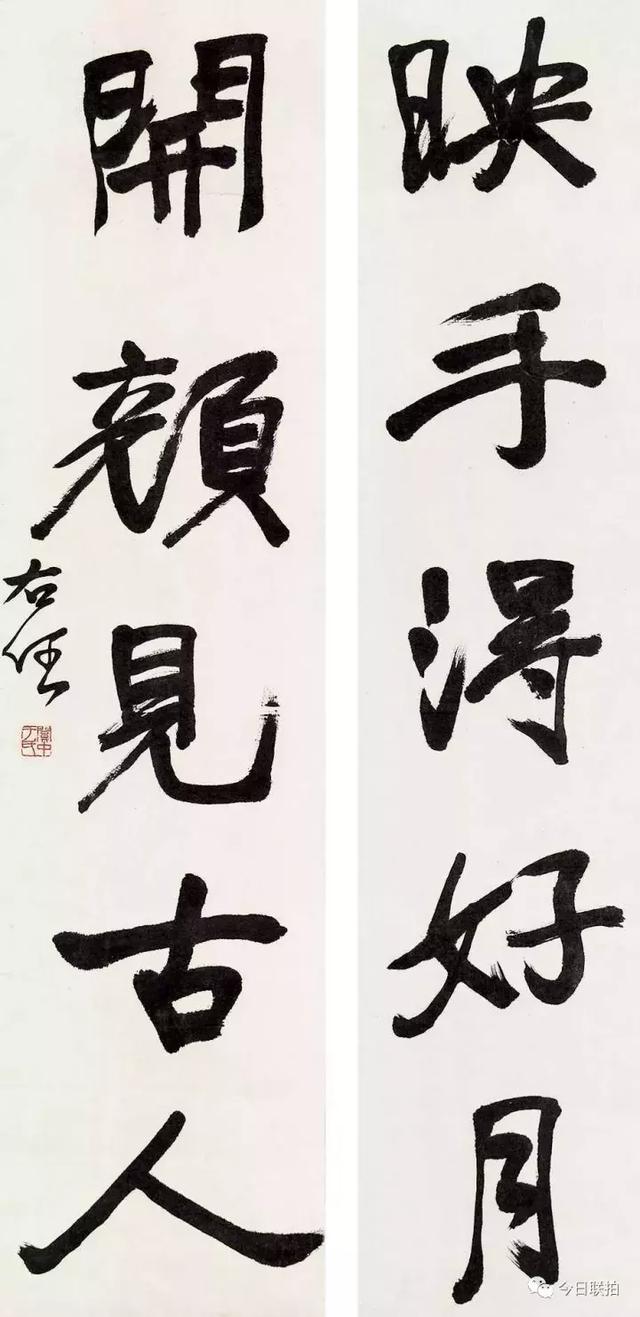 映手得好月
開顏見古人
右任
關中于氏
今日联拍